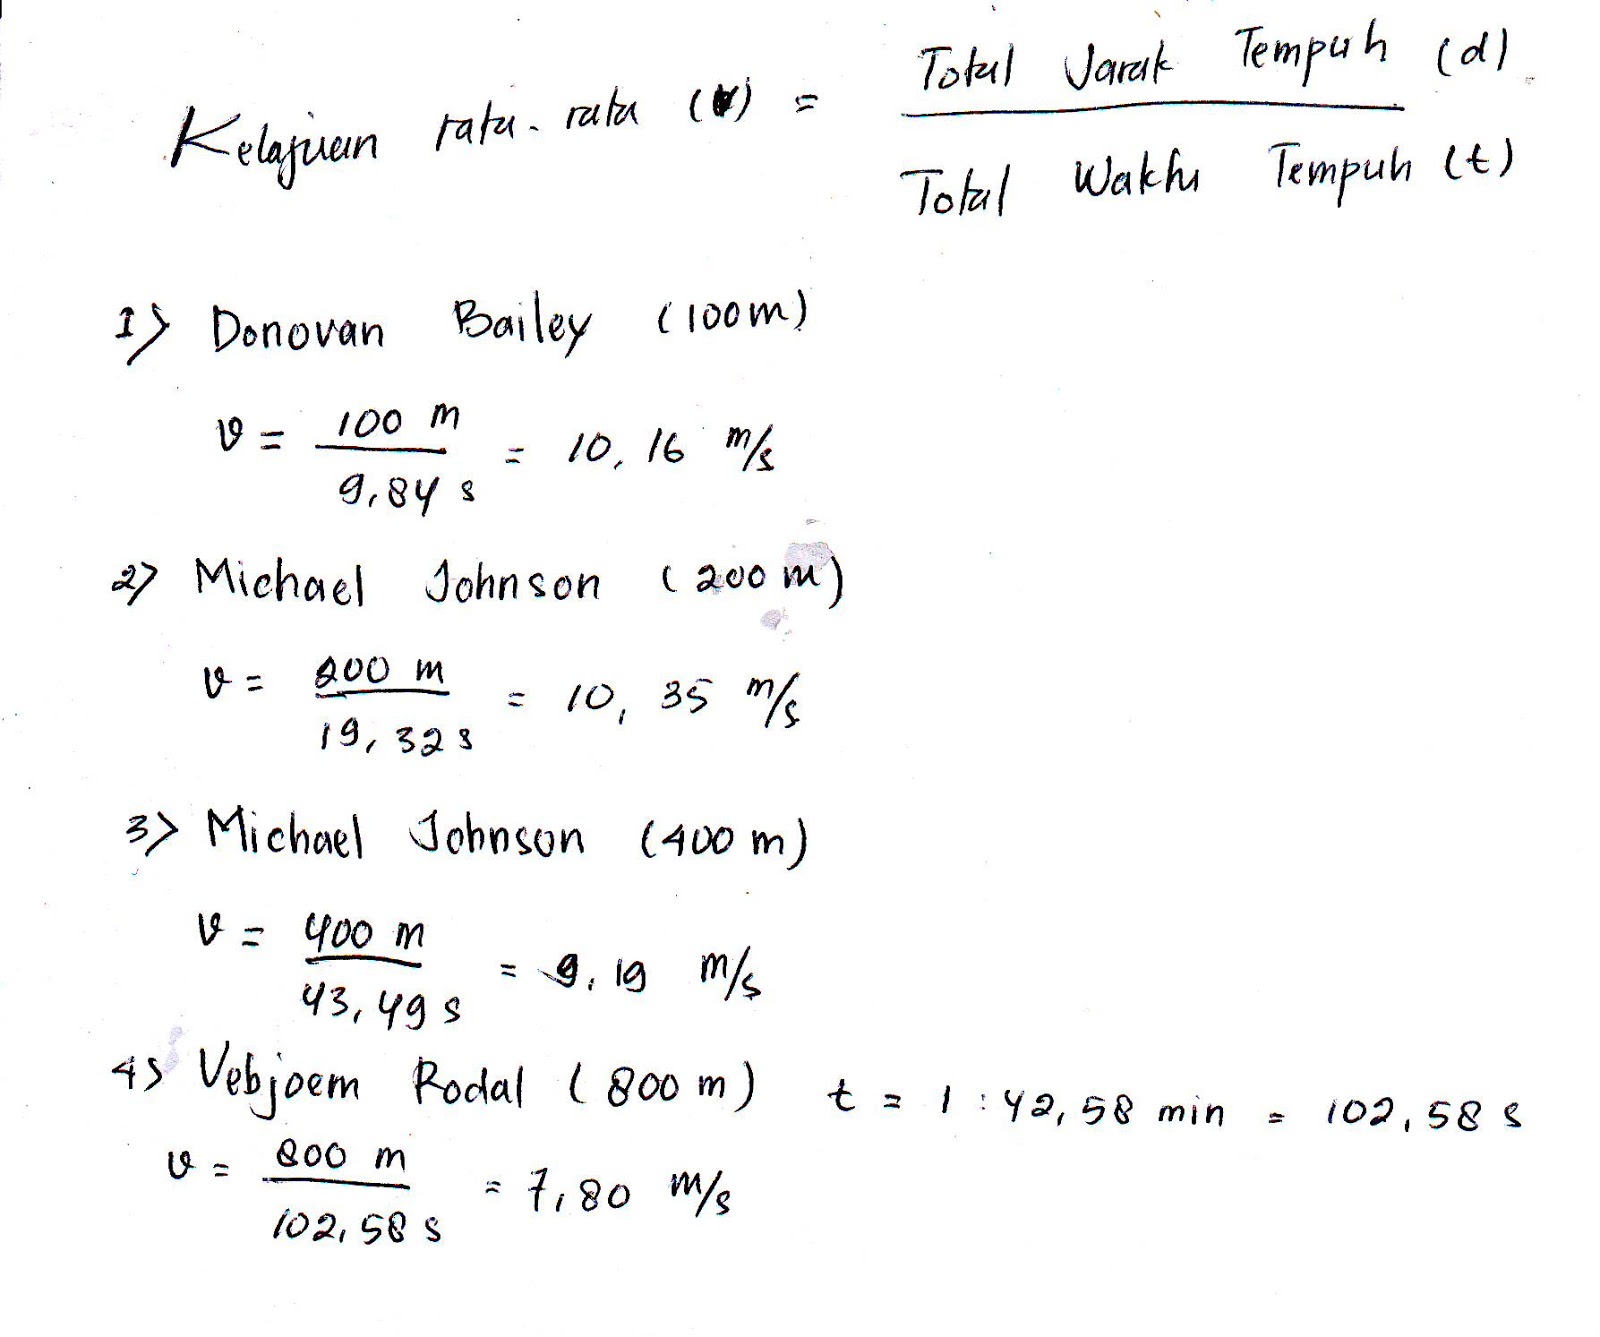 Kelajuan rata-rata (v) = Total Jarak Tempuh (d)
Total Waktu Tempuh (t)
1> Donovan Bailey (100m)
v = 100 m = 10,16 m/s
9,84 s
2> Michael Johnson (200 m)
v = 200 m = 10,35 m/s
19,32 s
3> Michael Johnson (400 m)
v = 400 m = 9,19 m/s
43,49 s
4> Vebjoem Rodal (800 m) t = 1:42,58 min = 102,58 s
v = 800 m = 7,80 m/s
102,58 s